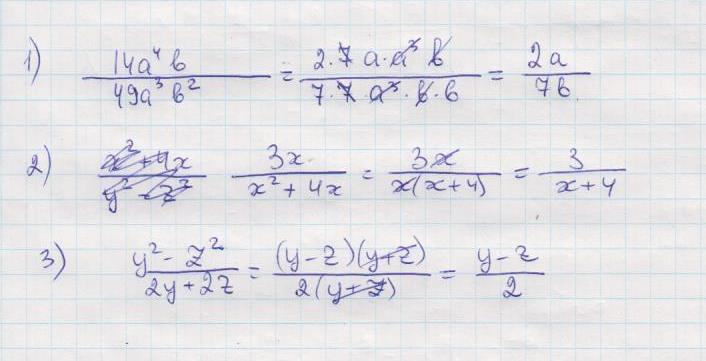 1) 14a⁴b / 49a³b² = 2·7a·a³b / 7·7·a³·b·b = 2a / 7b
2) x²+4x / y²-z² 3x / x²+4x = 3x / x(x+4) = 3 / x+4
3) y²-z² / 2y+2z = (y-z)(y+z) / 2(y+z) = y-z / 2